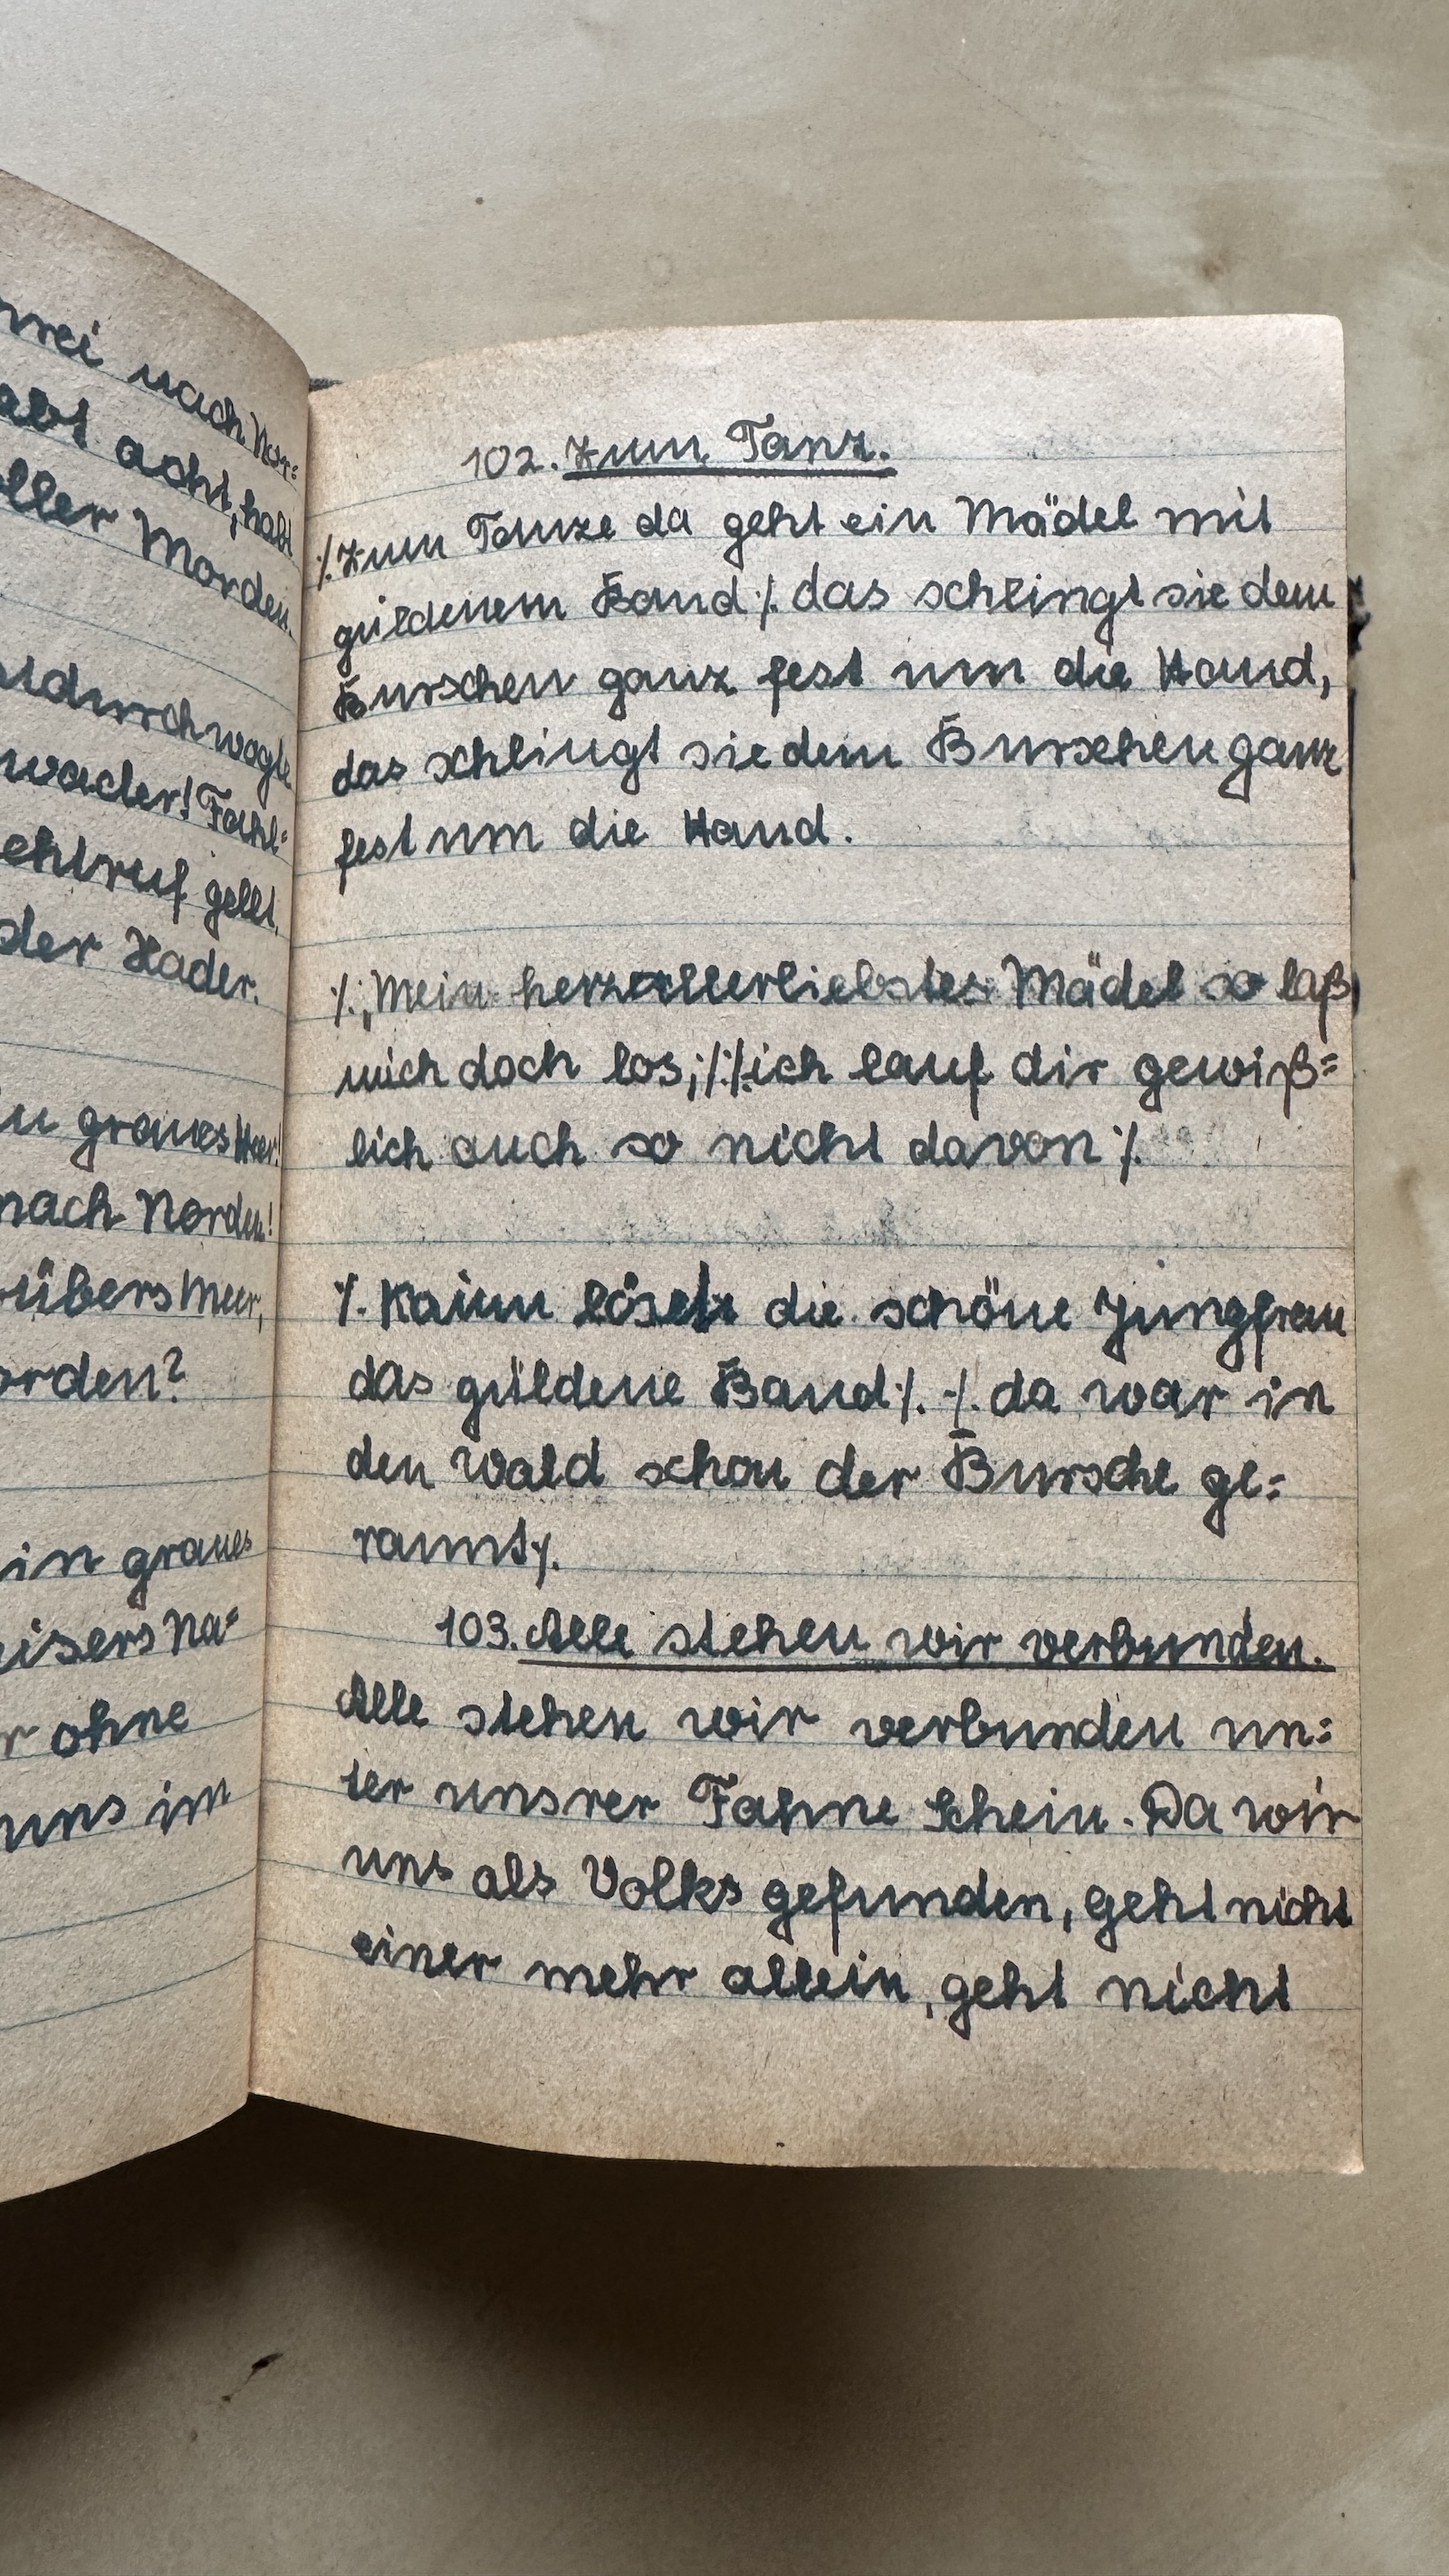 nach Nor:
acht, habt
ller Morden.
wader! Fahl=
gellt,
der Hader.
graues Heer!
nach Norden!
übers Meer,
orden?
in graues
eisers Na=
r ohne
uns im
102. Zum Tanz.
·/. Zum Tanze da geht ein Mädel mit
güldenem Band ·/. das schlingt sie dem
Burschen ganz fest um die Hand,
das schlingt sie dem Burschen ganz
fest um die Hand.
·/. „Mein herzallerliebstes Mädel so laß
mich doch los; ·/. ·/. ich lauf dir gewiß=
lich auch so nicht davon ·/.
·/. Kaum löset die schöne Jungfrau
das güldene Band ·/. ·/. da war in
den Wald schon der Bursche ge:
rannt ·/.
103. Alle stehen wir verbunden.
Alle stehen wir verbunden un:
ter unsrer Fahne Schein. Da wir
uns als Volks gefunden, geht nicht
einer mehr allein, geht nicht